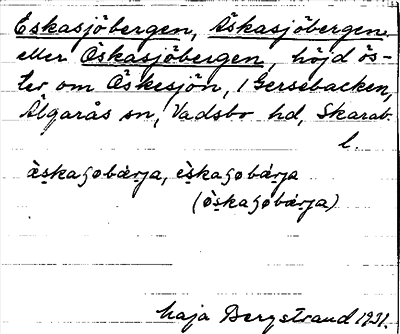 Eskasjöbergen, Äskasjöbergen
eller Öskasjöbergen, höjd ös-
ter om Öskesjön, i Gersebacken,
Älgarås sn, Vadsbo hd, Skarab.
l.
ὰska ʃobἀrja, ὲska ʃobἀrja
(ὸska ʃobἀrja)
Maja Bergstrand 1931.